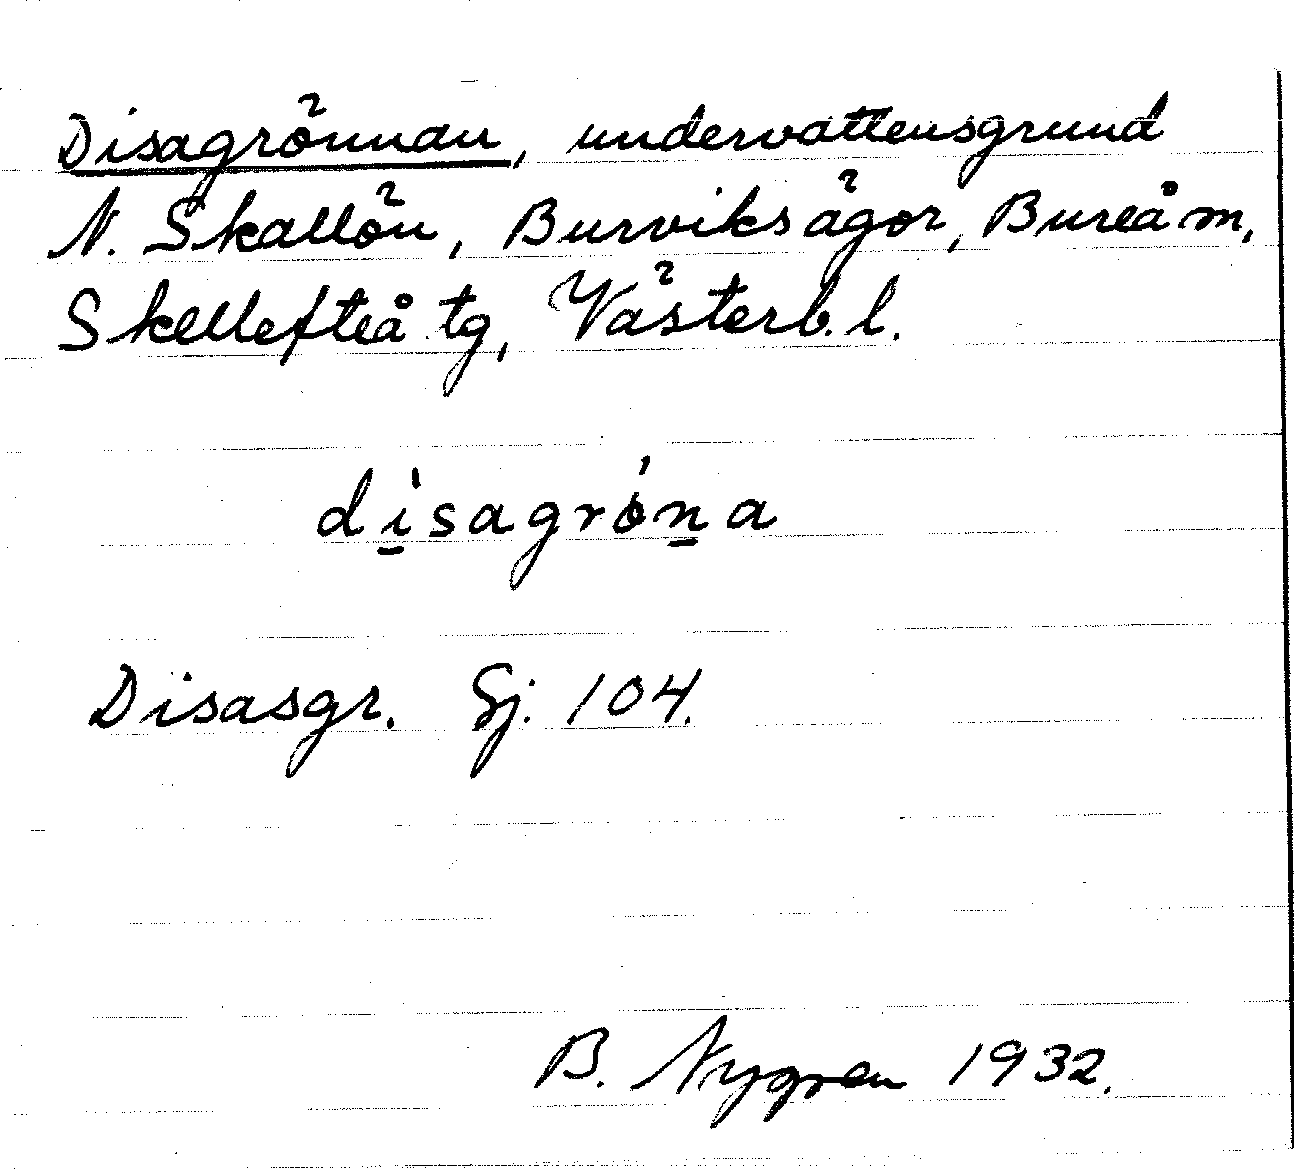 Disagrönnan, undervattensgrund
N. Skallön, Burviksägor, Bureå m,
Skellefteå tg, Västerb. l.
di̱sagrón̲a
Disasgr. Sj. 104.
B. Nygren 1932.